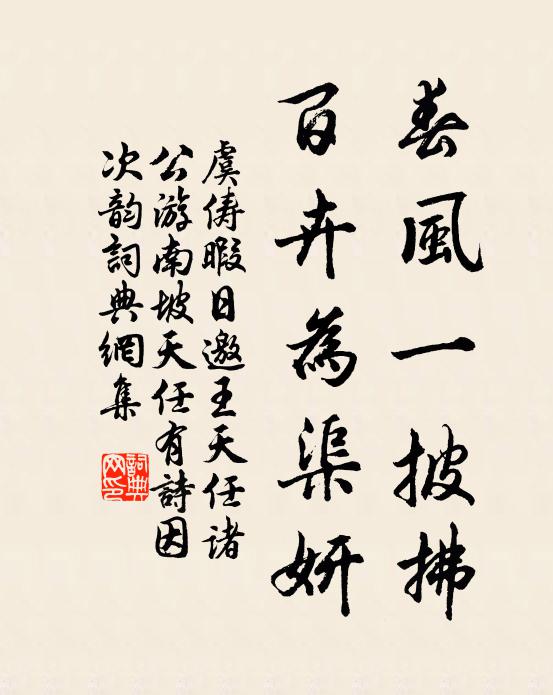 春風一披拂
百卉為渠妍
虞儔暇日邀王天任諸
公游南坡天任有詩因
次韵詞典網集
詞典
网印